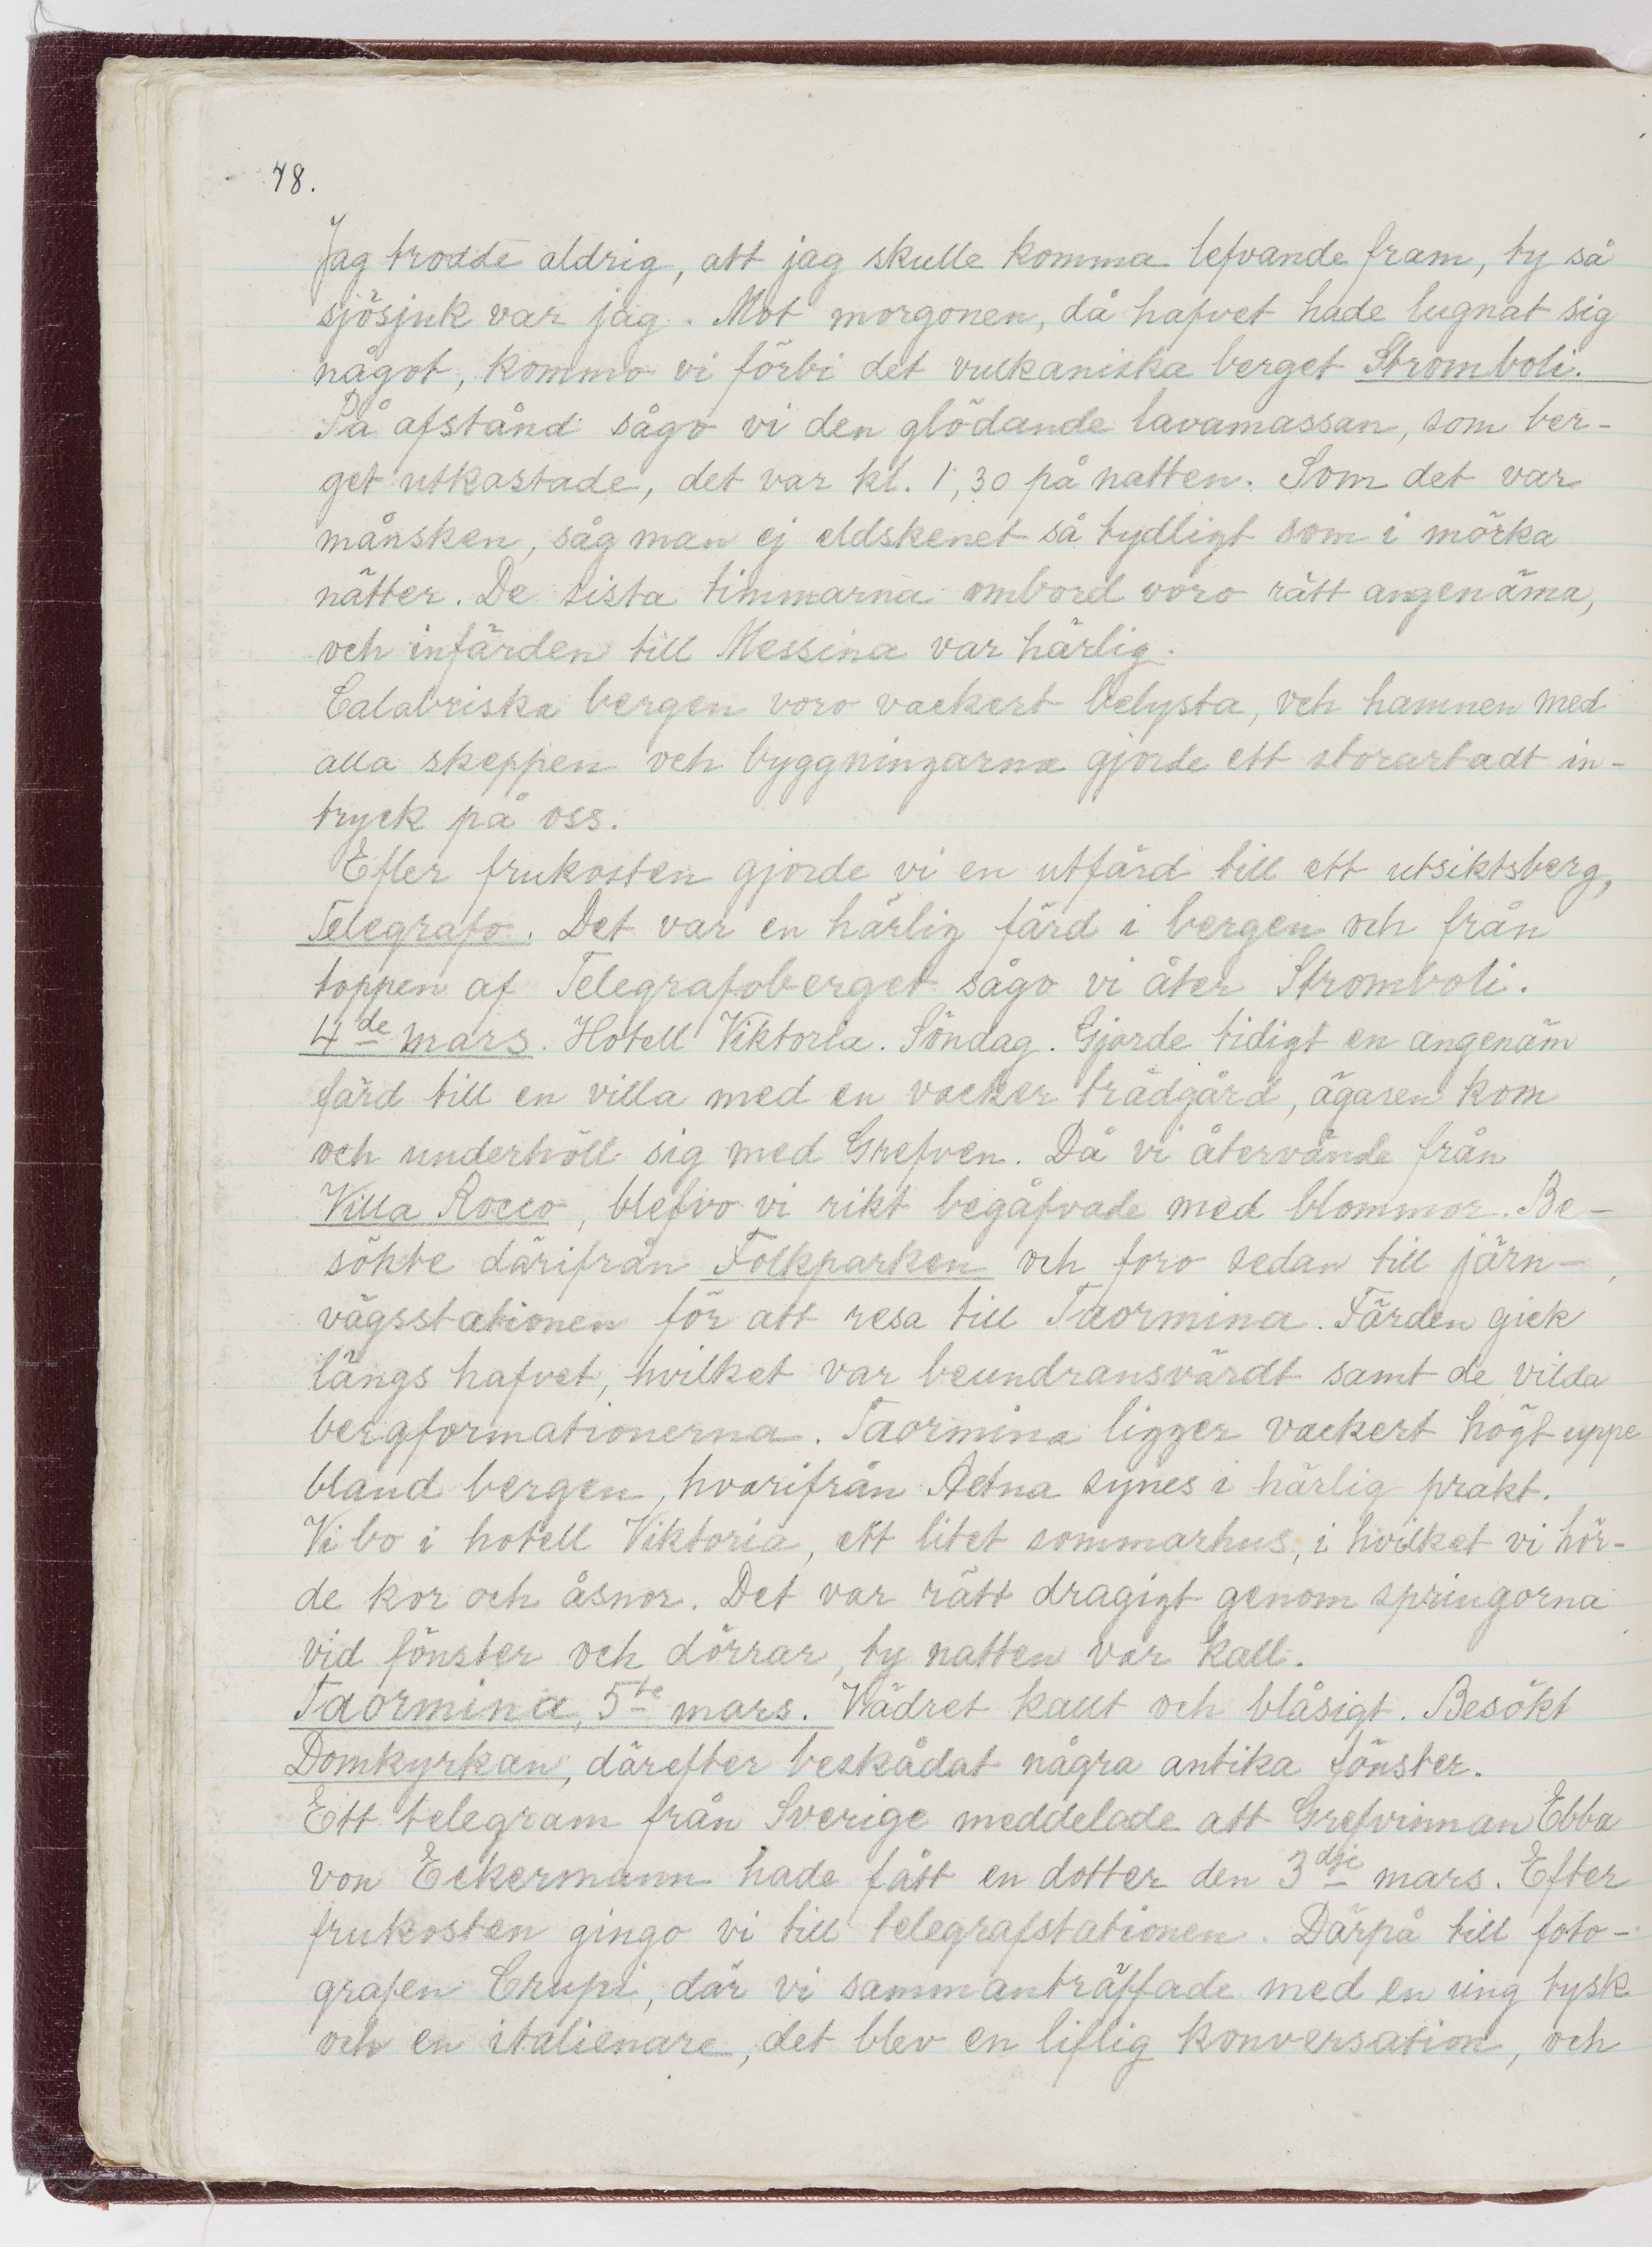 48.
Jag trodde aldrig, att jag skulle komma lefvande fram, ty så
sjösjuk var jag. Mot morgonen, då hafvet hade lugnat sig
något, kommo vi förbi det vulkaniska berget Stromboli.
På afstånd sågo vi den glödande lavamassan, som ber-
get utkastade, det var kl. 1,30 på natten. Som det var
månsken, såg man ej eldskenet så tydligt som i mörka
nätter. De sista timmarna ombord voro rätt angenäma,
och infärden till Messina var härlig.
Calabriska bergen voro vackert belysta, och hamnen med
alla skeppen och byggningarna gjorde ett storartadt in-
tryck på oss.
Efter frukosten gjorde vi en utfärd till ett utsiktsberg,
Telegrafo. Det var en härlig färd i bergen och från
toppen af Telegrafoberget sågo vi åter Stromboli.
4de mars. Hotell Viktoria. Söndag. Gjorde tidigt en angenäm
färd till en villa med en vacker trädgård, ägaren kom
och underhöll sig med Grefven. Då vi återvände från
Villa Rocco, blefvo vi rikt begåfvade med blommor. Be-
sökte därifrån Folkparken och foro sedan till järn-
vägsstationen för att resa till Taormina. Färden gick
längs hafvet, hvilket var beundransvärdt samt de vilda
bergformationerna. Taormina ligger vackert högt uppe
bland bergen, hvarifrån Aetna synes i härlig prakt.
Vi bo i hotell Viktoria, ett litet sommarhus, i hvilket vi hör-
de kor och åsnor. Det var rätt dragigt genom springorna
vid fönster och dörrar, ty natten var kall.
Taormina, 5te mars. Vädret kallt och blåsigt. Besökt
Domkyrkan, därefter beskådat några antika fönster.
Ett telegram från Sverige meddelade att Grefvinnan Ebba
von Eckermann hade fått en dotter den 3dje mars. Efter
frukosten gingo vi till telegrafstationen. Därpå till foto-
grafen Crupi, där vi sammanträffade med en ung tysk
och en italienare, det blev en liflig konversation, och